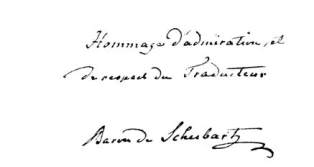 Hommage d'admiration, et
de respect du Traducteur
Baron de Schubart